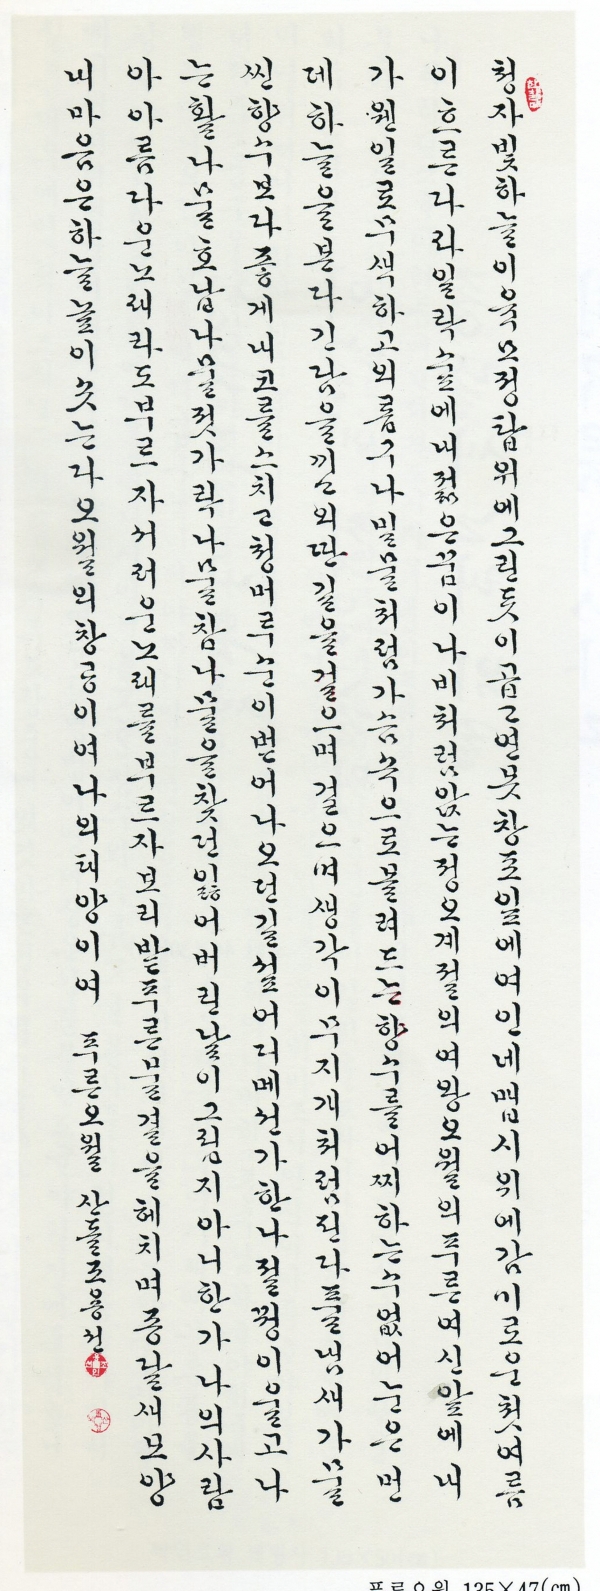 청자빛하늘이육모정탑위에그린듯이곱고연못창포잎에여인네맵시위에감미로운첫여름
이흐른다라일락숲에내젊은꿈이나비처럼앉는정오계절의여왕오월의푸른여신앞에내
가웬일로무색하고외롭구나밀물처럼가슴속으로몰려드는향수를어찌하는수없어눈은먼
데하늘을본다긴담을끼고외딴길을걸으며걸으며생각이무지개처럼핀다풀냄새가물
씬향수보다좋게내코를스치고청머루순이뻗어나오던길섶어디메선가한나절꿩이울고나
는활나물호납나물젓가락나물참나물을찾던잃어버린날이그립지아니한가나의사람
아아름다운노래라도부르자서러운노래를부르자보리밭푸른물결을헤치며종달새모양
내마음은하늘높이솟는다오월의창공이여나의태양이여 푸른오월 산돌조용선
푸른오월 135×47(cm)